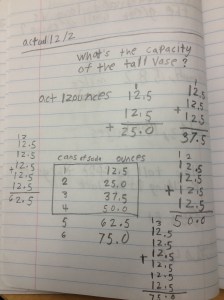 actual 12/2
what's the capacity
of the tall vase?
act 12 ounces
1
12.5
12.5
+
25.0
1
12.5
+ 12.5
12.5
37.5
12
12.5
12.5
12.5
+ 12.5
12.5
62.5
cans of soda ounces
1 12.5
2 25.0
3 37.5
4 50.0
5 62.5
6 75.0
12
12.5
12.5
+ 12.5
12.5
50.0
13
12.5
12.5
+ 12.5
12.5
12.5
12.5